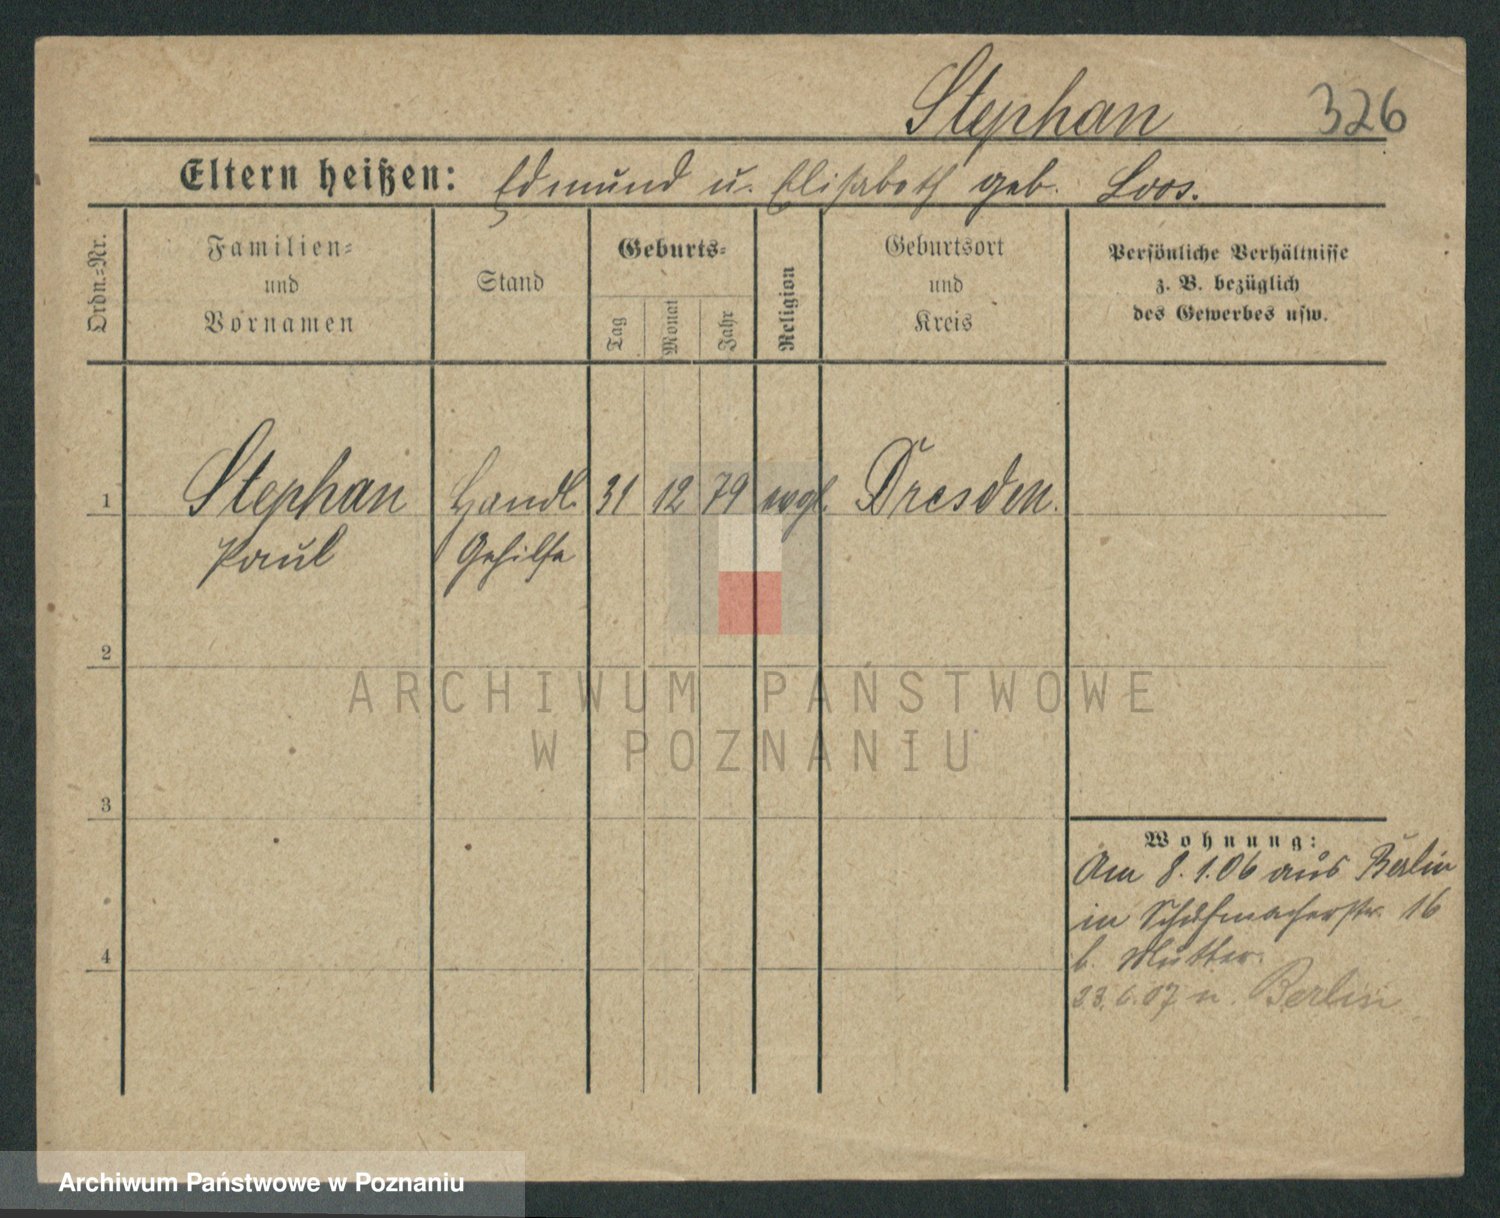 Stephan 326
Eltern heißen: Edmund u. Elisabeth geb. Loos.
Ordn.=Nr.
Familien=
und
Vornamen
Stand
Geburts=
Tag
Monat
Jahr
Religion
Geburtsort
und
Kreis
Persönliche Verhältnisse
z. B. bezüglich
des Gewerbes usw.
1 Stephan Handl. 31 12 79 evgl. Dresden.
Paul Gehilfe
2
3
4
Wohnung:
Am 8.1.06 aus Berlin
in Schuhmacherstr. 16
b. Mutter.
23.6.07 n. Berlin
ARCHIWUM PAŃSTWOWE
W POZNANIU
Archiwum Państwowe w Poznaniu